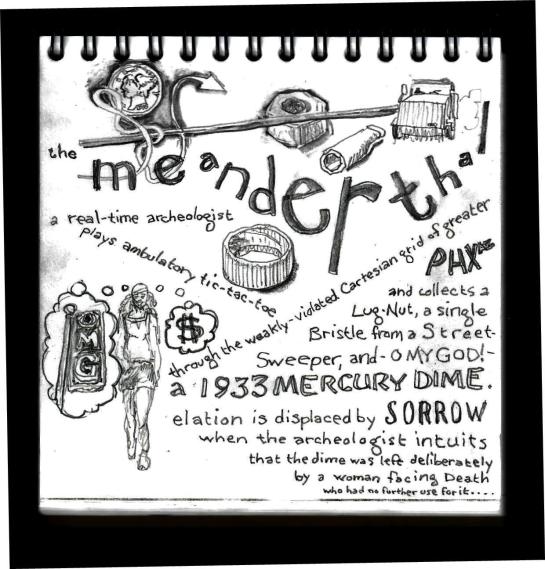 the meanderthal
a real-time archeologist
plays ambulatory tic-tac-toe
through the weakly-violated Cartesian grid of greater
PHX AZ
and collects a
Lug-Nut, a single
Bristle from a Street-
Sweeper, and - O MY GOD! -
a 1933 MERCURY DIME.
elation is displaced by SORROW
when the archeologist intuits
that the dime was left deliberately
by a woman facing Death
who had no further use for it....
OMG
$